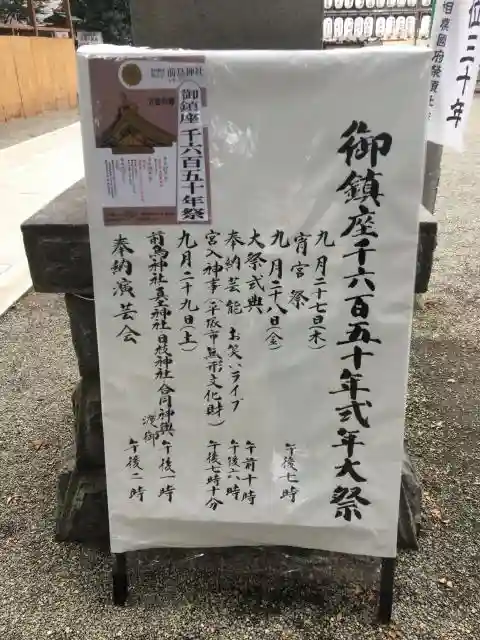 御鎮座千六百五十年式年大祭
九月二十七日(木)
宵宮祭 午後七時
九月二十八日(金)
大祭式典 午前十時
奉納芸能 お笑いライブ 午後六時
宮入神事(平塚市無形文化財) 午後七時十分
九月二十九日(土)
前鳥神社真土神社日枝神社合同神輿渡御 午後一時
奉納演芸会 午後二時
前鳥神社
御鎮座
千六百五十年祭